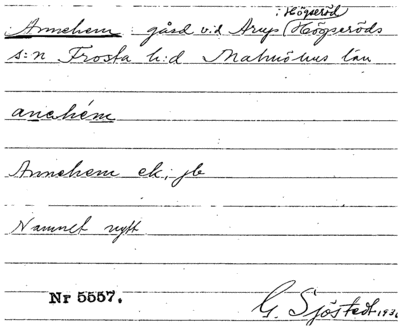 : Högseröd
Annehem : gård vid Arup (Högseröds
s:n Frosta h:d Malmöhus län
anehém
Annehem ek; jb
Namnet nytt
Nr 5557.
G. Sjöstedt 193